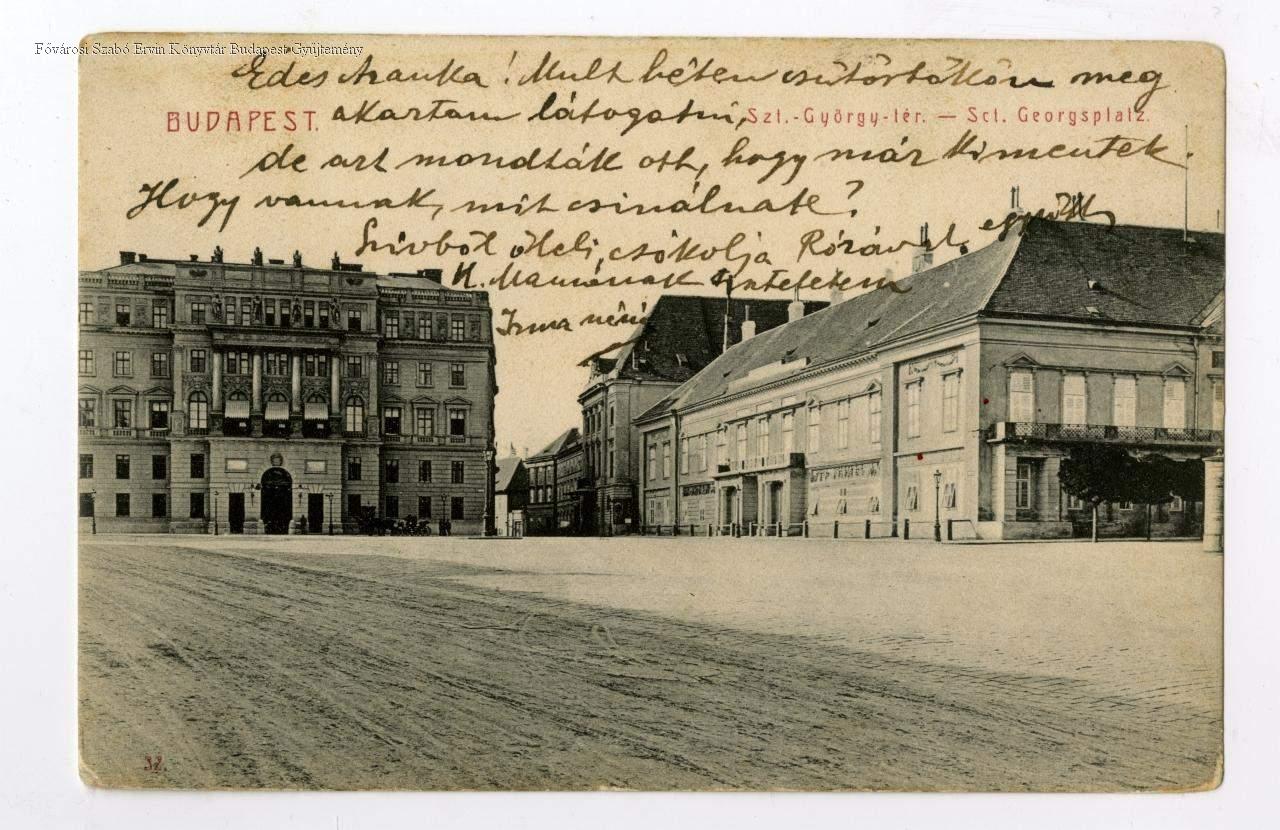 Fővárosi Szabó Ervin Könyvtár Budapest Gyűjtemény
Édes Aranka! Mult héten csütörtökön meg
akartam látogatni,
BUDAPEST.
Szt.-György-tér. — Sct. Georgsplatz.
de azt mondták ott, hogy már kimentek.
Hogy vannak, mit csinálnak?
Szivből öleli, csókolja Rózával együtt
K. Mamának tiszteletem
Irma néni
32.